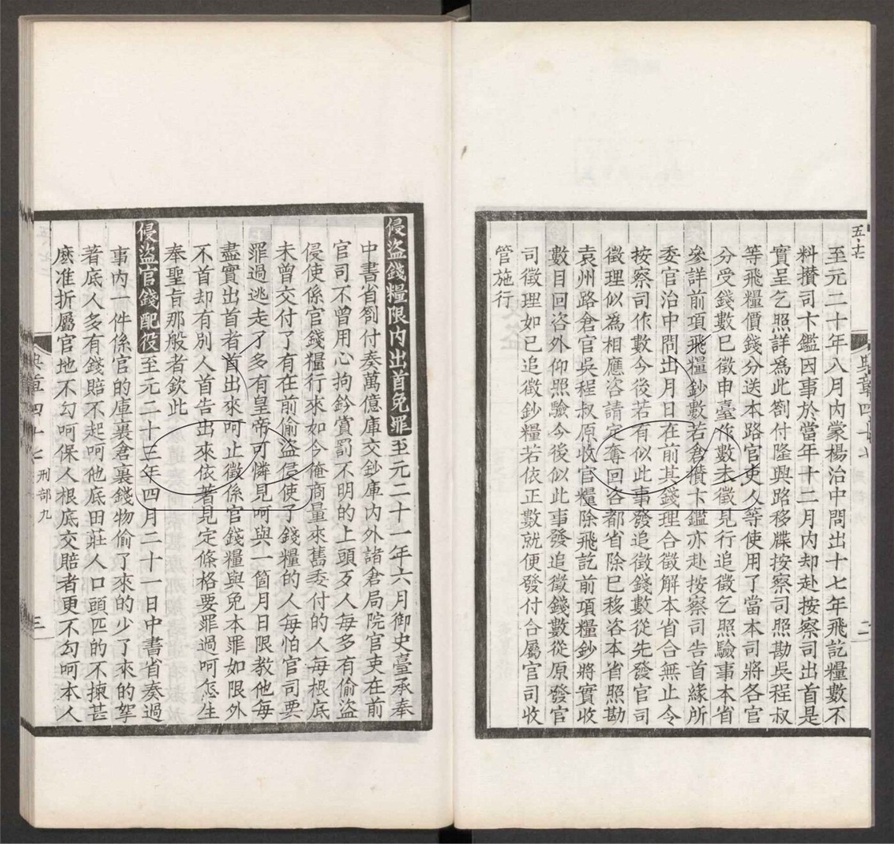 五十七
至元二十年八月內蒙楊治中問出十七年飛訖糧數不
料攢司卞鑑因事於當年十二月內却赴按察司出首是
實呈乞照詳爲此劄付隆興路移牒按察司照勘吳程叔
等飛糧價錢分送本路官吏人等使用了當本司將各官
分受錢數已徵申臺作數未徵見行追徵乞照驗事本省
參詳前項飛糧鈔數若倉攢卞鑑亦赴按察司告首緣所
委官治中問出月日在前其錢理合徵解本省合無止令
按察司作數今後若有似此事發追徵錢數從先發官司
徵理似爲相應咨請定奪回咨都省除已移咨本省照勘
袁州路倉官吳程叔原收官糧除飛訖前項糧鈔將實收
數目回咨外仰照驗今後似此事發追徵錢數從原發官
司徵理如已追徵鈔糧若依正數就便發付合屬官司收
管施行
典章四十七
二
侵盜錢糧限內出首免罪 至元二十一年六月御史臺承奉
中書省劄付奏萬億庫交鈔庫內外諸倉局院官吏在前
官司不曾用心拘鈐賞罰不明的上頭歹人每多有偷盜
侵使係官錢糧行來如今俺商量來舊委付的人每根底
未曾交付了有在前偷盜侵使了錢糧的人每怕官司要
罪過逃走了多有皇帝可憐見呵與一箇月日限教他每
盡實出首者首出來呵止徵係官錢糧與免本罪如限外
不首却有別人首告出來依著見定條格要罪過呵怎生
奉聖旨那般者欽此
侵盜官錢配役 至元二十三年四月二十一日中書省奏過
事內一件係官的庫裏倉裏錢物偷了來的少了來的拏
著底人多有錢賠不起呵他底田莊人口頭匹的不揀甚
麽准折屬官地不勾呵保人根底交賠者更不勾呵本人
典章四十七 刑部九
三